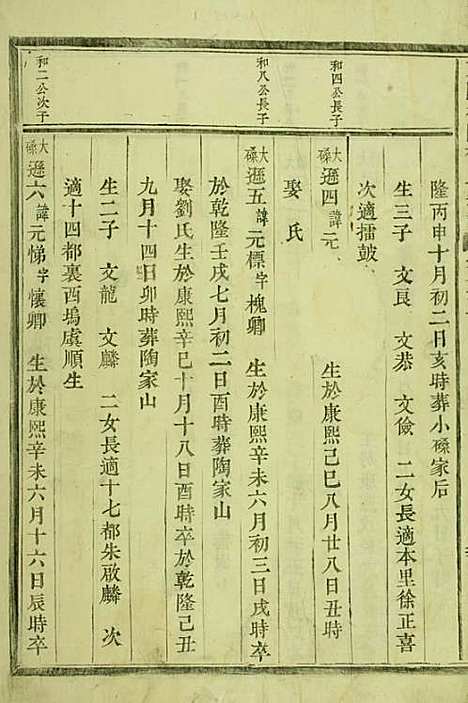 隆丙申十月初二日亥時葬小磜家后
生三子 文良 文恭 文儉 二女長適本里徐正喜
次適擂鼓
和四公長子
大磜遜四諱元 生於康熙己巳八月廿八日丑時
娶 氏
和八公長子
大磜遜五諱元標字槐卿 生於康熙辛未六月初三日戌時卒
於乾隆壬戌七月初二日酉時葬陶家山
娶劉氏生於康熙辛巳十月十八日酉時卒於乾隆己丑
九月十四日卯時葬陶家山
生二子 文龍 文麟 二女長適十七都朱啟麟 次
適十四都裏西塢虞順生
和二公次子
大磜遜六諱元悌字懷卿 生於康熙辛未六月十六日辰時卒